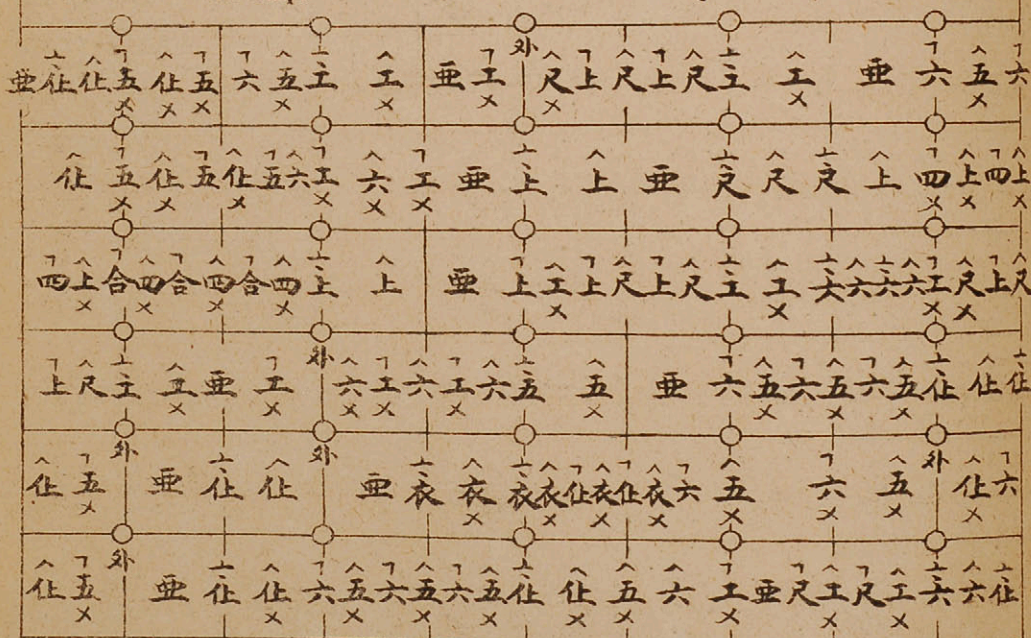 外
亜 仩 仩 五 仩 五 六 五 工 工 亜 工 尺 上 尺 上 尺 工 工 亜 六 五 六
仩 五 仩 五 仩 五 六 工 六 工 亜 上 上 亜 尺 尺 尺 上 四 上 四 上
四 上 合 四 合 四 合 四 上 上 亜 上 工 上 尺 上 尺 工 工 六 六 六 六 工 尺 上 尺
外
上 尺 工 工 亜 工 六 工 六 工 六 五 五 亜 六 五 六 五 六 五 仩 仩 仩
外 外 外
仩 五 亜 仩 仩 亜 衣 衣 衣 衣 仩 衣 仩 衣 六 五 六 五 仩 六
外
仩 五 亜 仩 仩 六 五 六 五 六 五 仩 仩 五 六 工 亜 尺 工 尺 工 六 六 仩